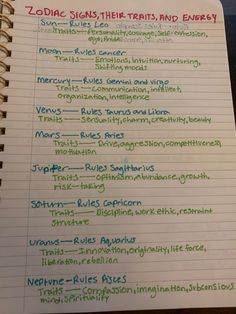 ZODIAC SIGNS, THEIR TRAITS, AND ENERGY
Sun—Rules Leo
Traits—Personality, courage, self-
ego, pride
Moon—Rules cancer
Traits—Emotions, intuition, nurturing,
Shifting moods
Mercury—Rules Gemini and Virgo
Traits—Communication, intellect,
organization, intelligence
Venus—Rules Taurus and Libra
Traits—Sensuality, charm, creativity, beauty
Mars—Rules Aries
Traits—Drive, aggression, competitiveness,
motivation
Jupiter—Rules Sagittarius
Traits—optimism, abundance, growth
risk-taking
Saturn—Rules Capricorn
Traits—Discipline, work ethic, restraint
structure
Uranus—Rules Aquarius
Traits—Innovation, originality, life force,
liberation, rebellion
Neptune—Rules Pisces
Traits—Compassion, imagination, subconsious
mind, spirituality